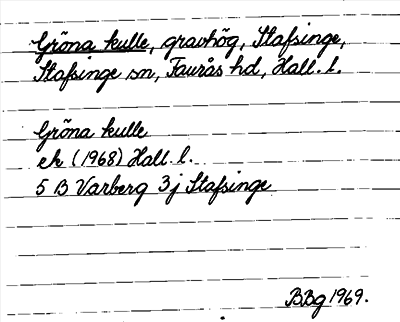 Gröna kulle, gravhög, Stafsinge,
Stafsinge sn, Faurås hd, Hall. l.
Gröna kulle
ek (1968) Hall. l.
5 B Varberg 3j Stafsinge
BBg 1969.